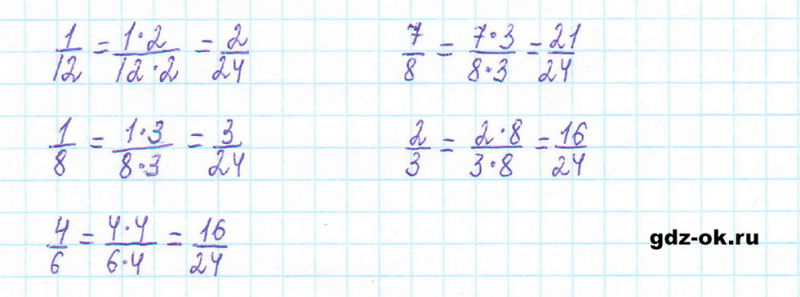 1/12 = 1·2/12·2 = 2/24
7/8 = 7·3/8·3 = 21/24
1/8 = 1·3/8·3 = 3/24
2/3 = 2·8/3·8 = 16/24
4/6 = 4·4/6·4 = 16/24
gdz-ok.ru